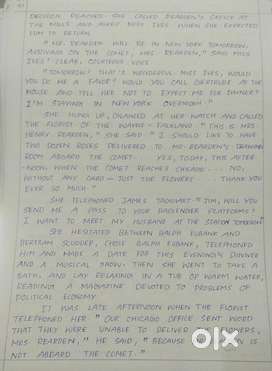 DECISION REACHED. SHE CALLED REARDEN'S OFFICE AT
THE MILLS AND ASKED MISS IVES WHEN SHE EXPECTED
HIM TO RETURN.
"MR. REARDEN WILL BE IN NEW YORK TOMORROW,
ARRIVING ON THE COMET, MRS. REARDEN," SAID MISS
IVES' CLEAR, COURTEOUS VOICE.
"TOMORROW? THAT'S WONDERFUL. MISS IVES, WOULD
YOU DO ME A FAVOR? WOULD YOU CALL GERTRUDE AT THE
HOUSE AND TELL HER NOT TO EXPECT ME FOR DINNER?
I'M STAYING IN NEW YORK OVERNIGHT."
SHE HUNG UP, GLANCED AT HER WATCH AND CALLED
THE FLORIST OF THE WAYNE-FALKLAND. "THIS IS MRS.
HENRY REARDEN," SHE SAID. "I SHOULD LIKE TO HAVE
TWO DOZEN ROSES DELIVERED TO MR. REARDEN'S DRAWING
ROOM ABOARD THE COMET... YES, TODAY, THIS AFTER-
-NOON, WHEN THE COMET REACHES CHICAGO.... NO,
WITHOUT ANY CARD - JUST THE FLOWERS.... THANK YOU
EVER SO MUCH."
SHE TELEPHONED JAMES TAGGART. "JIM, WILL YOU
SEND ME A PASS TO YOUR PASSENGER PLATFORMS?
I WANT TO MEET MY HUSBAND AT THE STATION TOMORROW."
SHE HESITATED BETWEEN BALPH EUBANK AND
BERTRAM SCUDDER, CHOSE BALPH EUBANK, TELEPHONED
HIM AND MADE A DATE FOR THIS EVENING'S DINNER
AND A MUSICAL SHOW. THEN SHE WENT TO TAKE A
BATH, AND LAY RELAXING IN A TUB OF WARM WATER,
READING A MAGAZINE DEVOTED TO PROBLEMS OF
POLITICAL ECONOMY.
IT WAS LATE AFTERNOON WHEN THE FLORIST
TELEPHONED HER. "OUR CHICAGO OFFICE SENT WORD
THAT THEY WERE UNABLE TO DELIVER FLOWERS,
MRS. REARDEN," HE SAID, "BECAUSE IS
NOT ABOARD THE COMET."
OLX